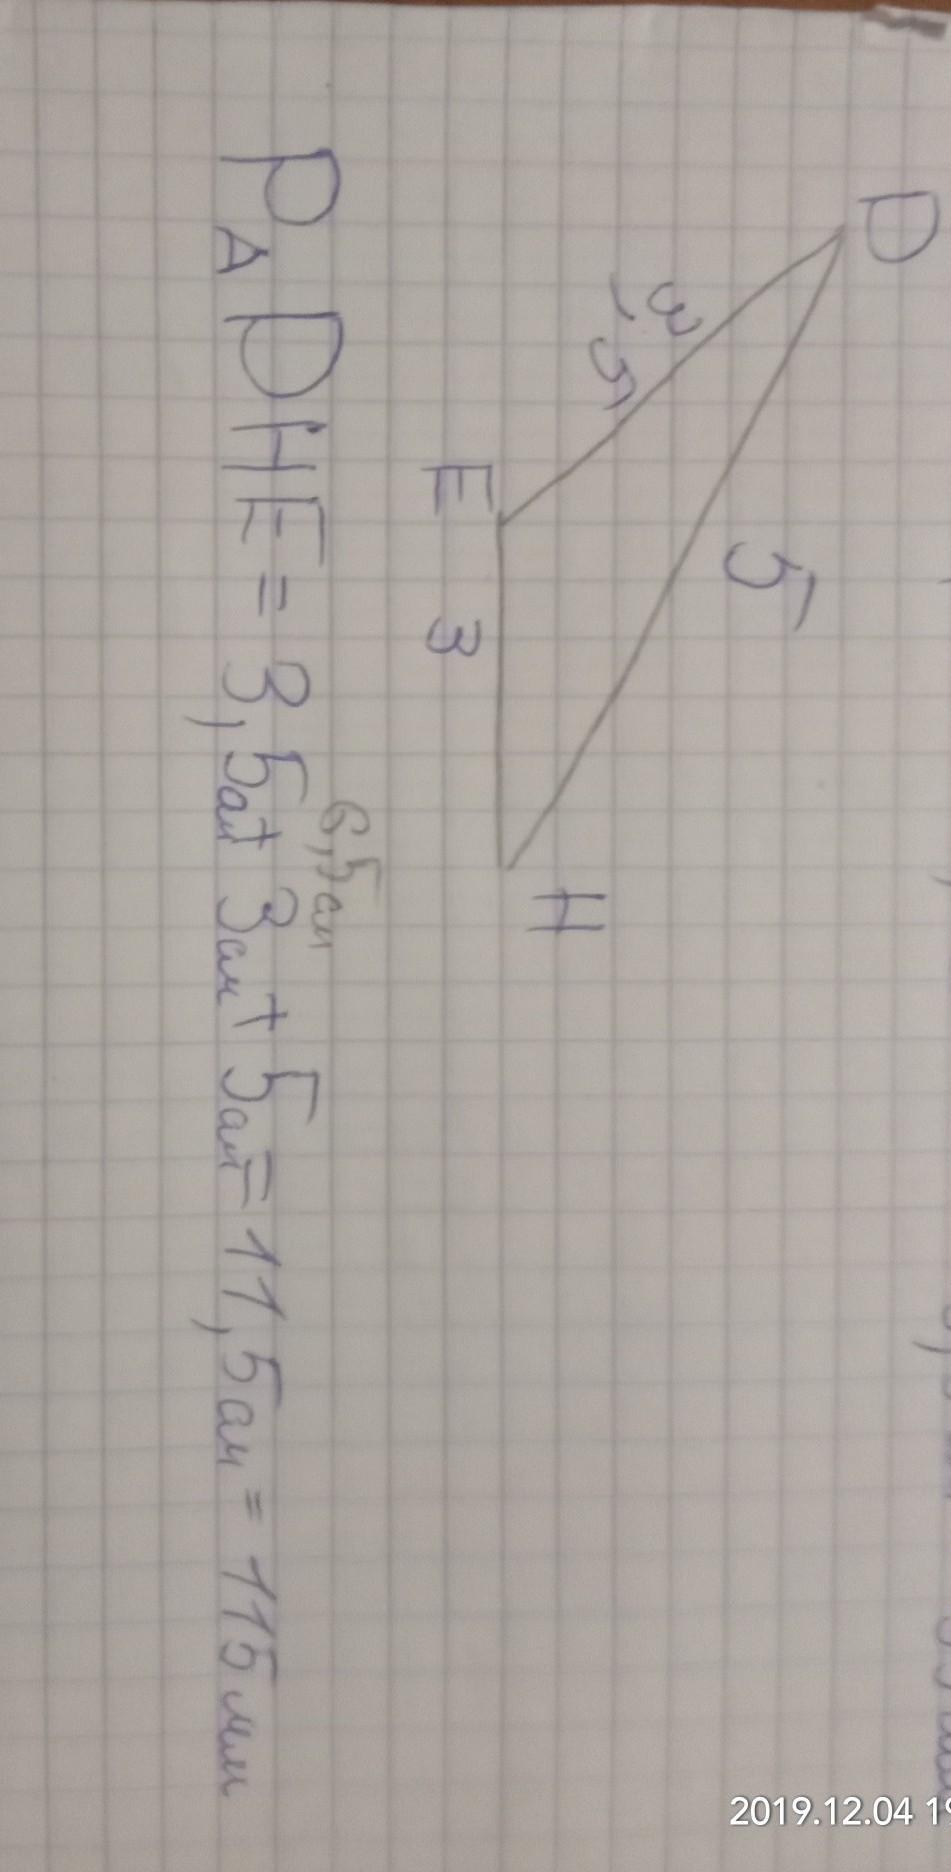 D
3,5
5
E
3
H
6,5 см
P△ DHE = 3,5см + 3см + 5см = 11,5см = 115 мм
2019.12.04 19